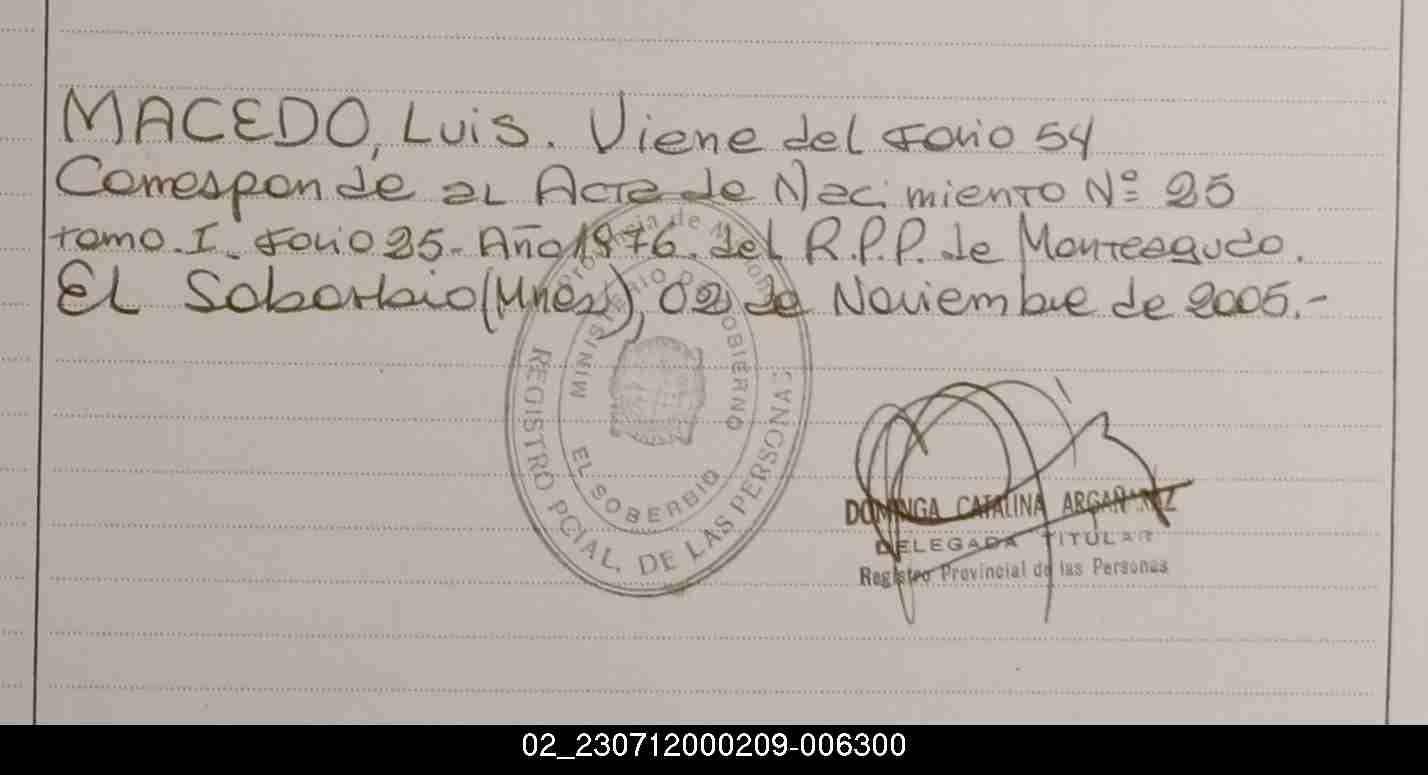 MACEDO, Luis. Viene del folio 54
Corresponde al Acta de Nacimiento Nº 25
tomo. I. folio 25. Año 1976. del R.P.P. de Monteagudo.
El Soberbio (Mnes), 02 de Noviembre de 2005.-
Provincia de Misiones
MINISTERIO DE GOBIERNO
EL SOBERBIO
REGISTRO PCIAL. DE LAS PERSONAS
DOMINGA CATALINA ARGAÑARAZ
DELEGADA TITULAR
Registro Provincial de las Personas
02_230712000209-006300